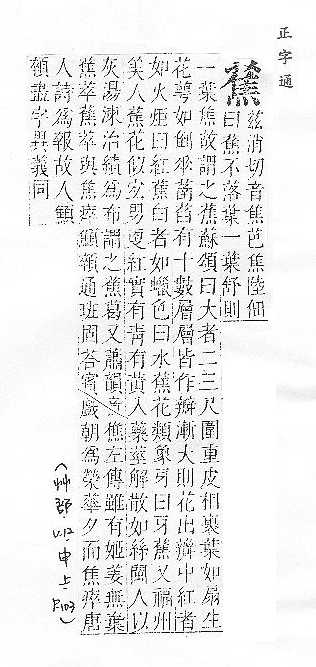 正字通
蕉
茲消切音焦芭蕉陸佃
曰蕉不落葉一葉舒則
一葉焦故謂之蕉蘇頌曰大者二三尺圍重皮相裹葉如扇生
花蕚如倒垂菡萏有十數層層皆作瓣漸大則花出瓣中紅者
如火炬曰紅蕉白者如蠟色曰水蕉花類象牙曰牙蕉又福州
美人蕉花似男更紅實有靑有黃入藥莖解散如絲閩人以
灰湯湅治績爲布謂之蕉葛又蕭韻音樵左傳雖有姬姜無棄
蕉萃蕉萃與憔悴顦顇通班固荅賓戲朝爲榮華夕而焦瘁唐
人詩爲報故人顦
顇盡字異義同
(艸部 申上)